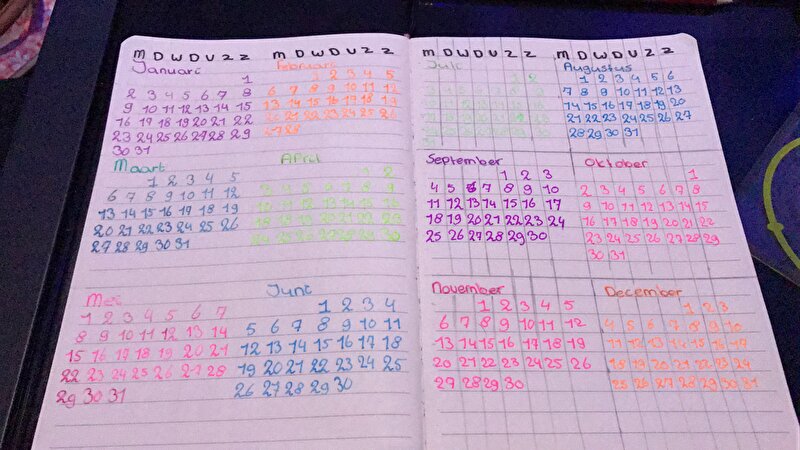 M D W D V Z Z
M D W D V Z Z
Januari
1
2 3 4 5 6 7 8
9 10 11 12 13 14 15
16 17 18 19 20 21 22
23 24 25 26 27 28 29
30 31
Februari
1 2 3 4 5
6 7 8 9 10 11 12
13 14 15 16 17 18 19
20 21 22 23 24 25 26
27 28
Maart
1 2 3 4 5
6 7 8 9 10 11 12
13 14 15 16 17 18 19
20 21 22 23 24 25 26
27 28 29 30 31
April
1 2
3 4 5 6 7 8 9
10 11 12 13 14 15 16
17 18 19 20 21 22 23
24 25 26 27 28 29 30
Mei
1 2 3 4 5 6 7
8 9 10 11 12 13 14
15 16 17 18 19 20 21
22 23 24 25 26 27 28
29 30 31
Juni
1 2 3 4
5 6 7 8 9 10 11
12 13 14 15 16 17 18
19 20 21 22 23 24 25
26 27 28 29 30
M D W D V Z Z
M D W D V Z Z
Juli
1 2
Augustus
1 2 3 4 5 6
7 8 9 10 11 12 13
14 15 16 17 18 19 20
21 22 23 24 25 26 27
28 29 30 31
September
1 2 3
4 5 6 7 8 9 10
11 12 13 14 15 16 17
18 19 20 21 22 23 24
25 26 27 28 29 30
Oktober
1
2 3 4 5 6 7 8
9 10 11 12 13 14 15
16 17 18 19 20 21 22
23 24 25 26 27 28 29
30 31
November
1 2 3 4 5
6 7 8 9 10 11 12
13 14 15 16 17 18 19
20 21 22 23 24 25 26
27 28 29 30
December
1 2 3
4 5 6 7 8 9 10
11 12 13 14 15 16 17
18 19 20 21 22 23 24
25 26 27 28 29 30 31